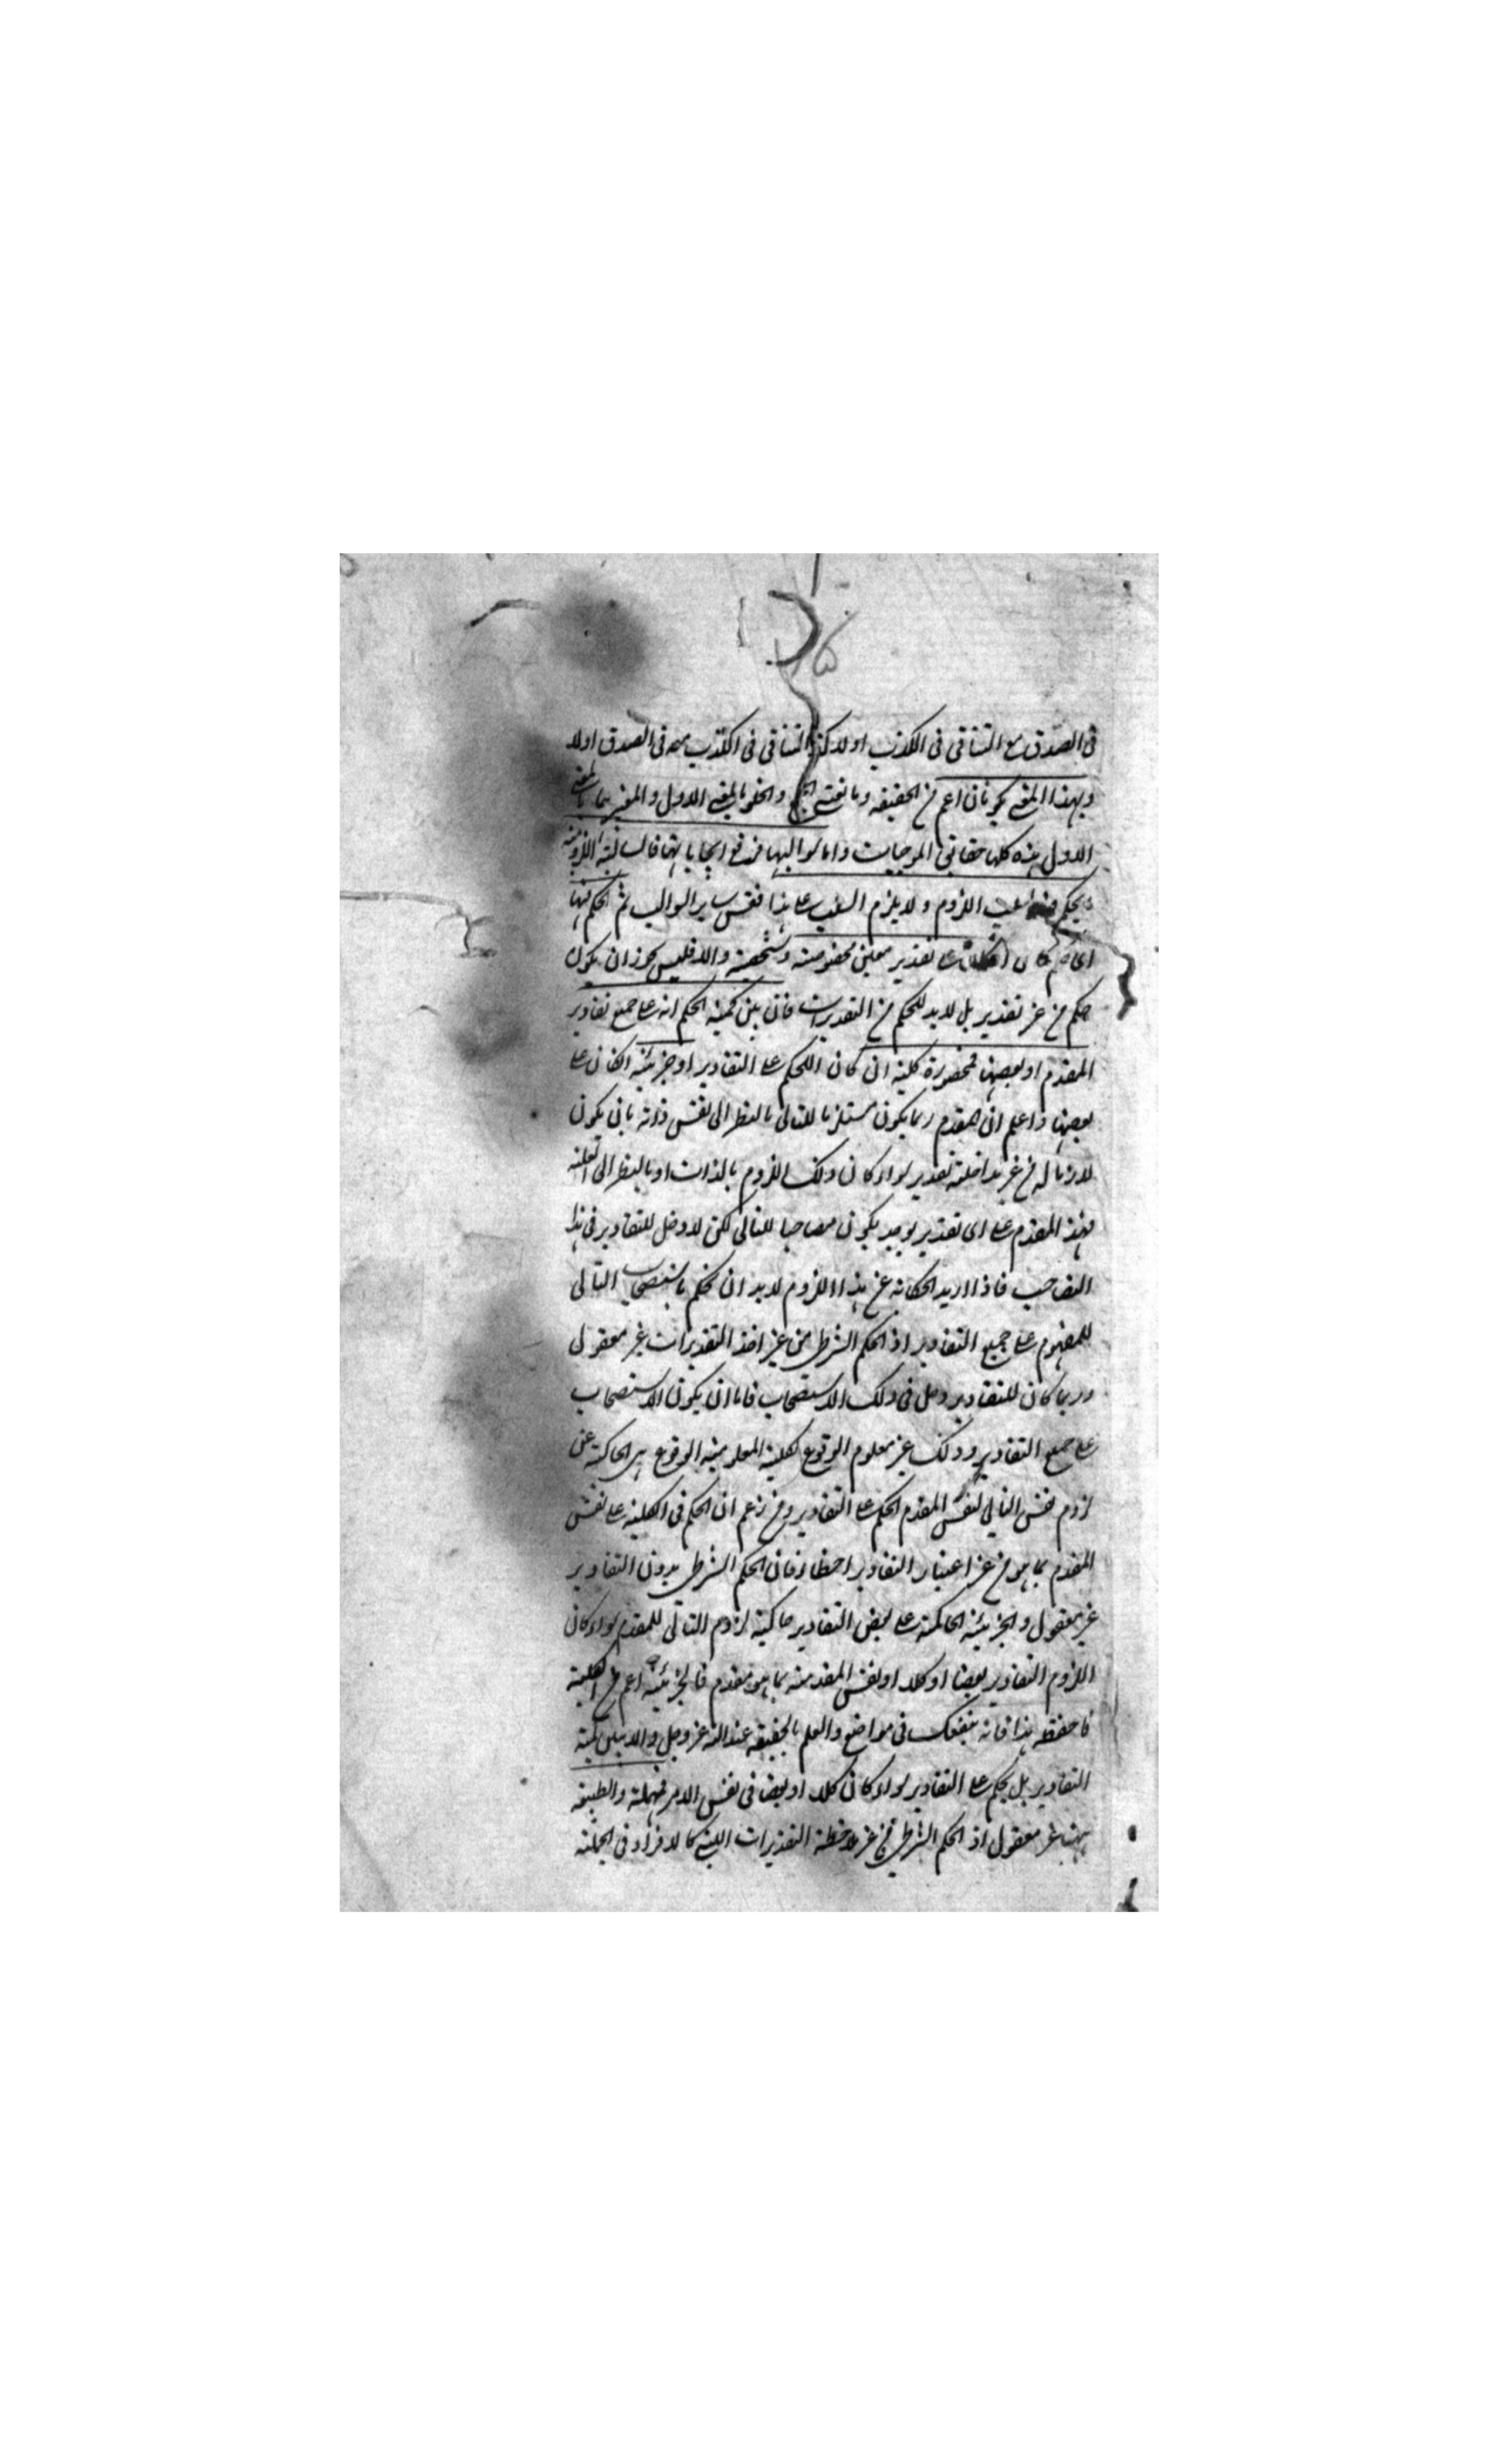 في الصدق مع التنافي في الكذب او لا كذا التنافي في الكذب معه في الصدق اولا
وبهذا المعنى يكونان اعم من الحقيقة ومانعتي الجمع والخلو بالمعنى الاول والمعنى
الاول هذه كلها حقائق الموجبات واما سوالبها فرفع ايجاباتها فالسالبة اللزومية
يحكم فيها بسلب اللزوم ولا يلزم السلب على هذا فقس سائر السوالب ثم الحكم فيها
ان كان على تقدير معين مخصوصة وشخصية والا فليس يجوز ان يكون
حكم من غير تقدير بل لابد للحكم من التقديرات فان بين كمية الحكم انه على جميع تقادير
المقدم او بعضها فمحصورة كلية ان كان الحكم على التقادير او جزئية ان كان على
بعضها واعلم ان المقدم ربما يكون مستلزما للتالي بالنظر الى نفس ذاته بان يكون
لازما له من غير مداخلة تقدير سواء كان ذلك اللزوم بالذات او بالنظر الى العلة
فهذا المقدم على اى تقدير يوجد يكون مصاحبا للتالي لكن لا دخل للتقادير في هذا
التصاحب فاذا اريد الحكاية عن هذا اللزوم لابد ان يحكم باستصحاب التالي
للمفهوم على جميع التقادير اذ الحكم الشرطي من غير اخذ التقديرات غير معقول
وربما كان للتقادير دخل في ذلك الاستصحاب فاما ان يكون الاستصحاب
على جميع التقادير وذلك غير معلوم الوقوع لكلية المعلومية الوقوع هي الحاكية عن
لزوم نفس التالي لنفس المقدم الحكم على التقادير ومن زعم ان الحكم في الكلية على نفس
المقدم بما هو من غير اعتبار التقادير اخطأ فان الحكم الشرطي بدون التقادير
غير معقول والجزئية الحاكمة على بعض التقادير حاكية لزوم التالي للمقدم سواء كان
اللزوم التقادير بعضا او كلا او لنفس المقدمية بما هو مقدم فالجزئية اعم من الكلية
فاحفظ هذا فانه ينفعك في مواضع والعلم بالحقيقة عند الله عز وجل والا يبين كمية
التقادير بل يحكم على التقادير سواء كان كلا او بعضا في نفس الامر فمهملة والطبيعة
ههنا غير معقول اذ الحكم الشرطي من غير ملاحظة التقديرات التي كالافراد في الحملية